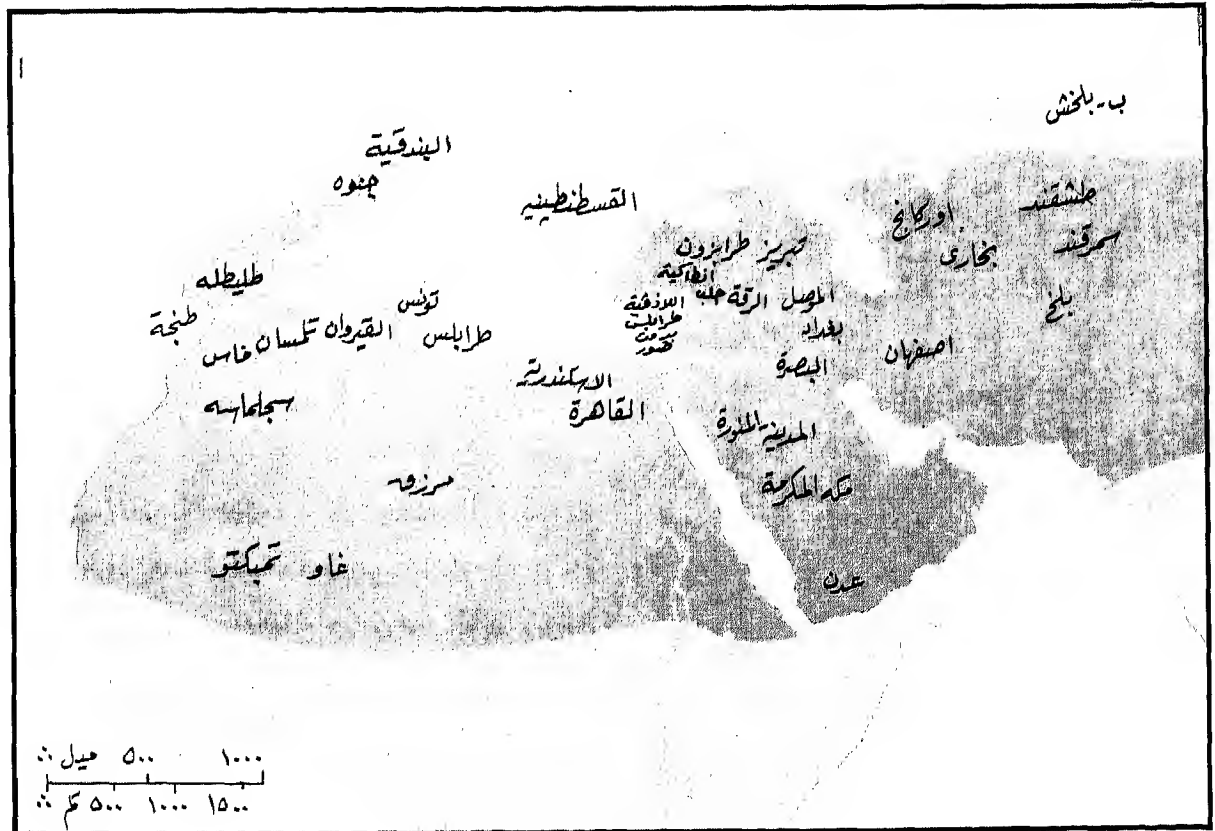 ب - بلخش
البندقية
جنوه
القسطنطينيه
طشقند
اوركانج
سمرقند
بخارى
تبريز طرابزون
انطاكية
طليطله
تونس
اللاذقية
حلب
الموصل الرقة
بلخ
طنجة
طرابلس
القيروان
تلمسان
فاس
طرابلس
صور
بغداد
اصفهان
البصرة
الاسكندرية
سجلماسه
القاهرة
المدينه المنورة
مرزق
مكه المكرمة
غاو تمبكتو
عدن
ميل ٥٠٠ ١٠٠٠
كم ٥٠٠ ١٠٠٠ ١٥٠٠